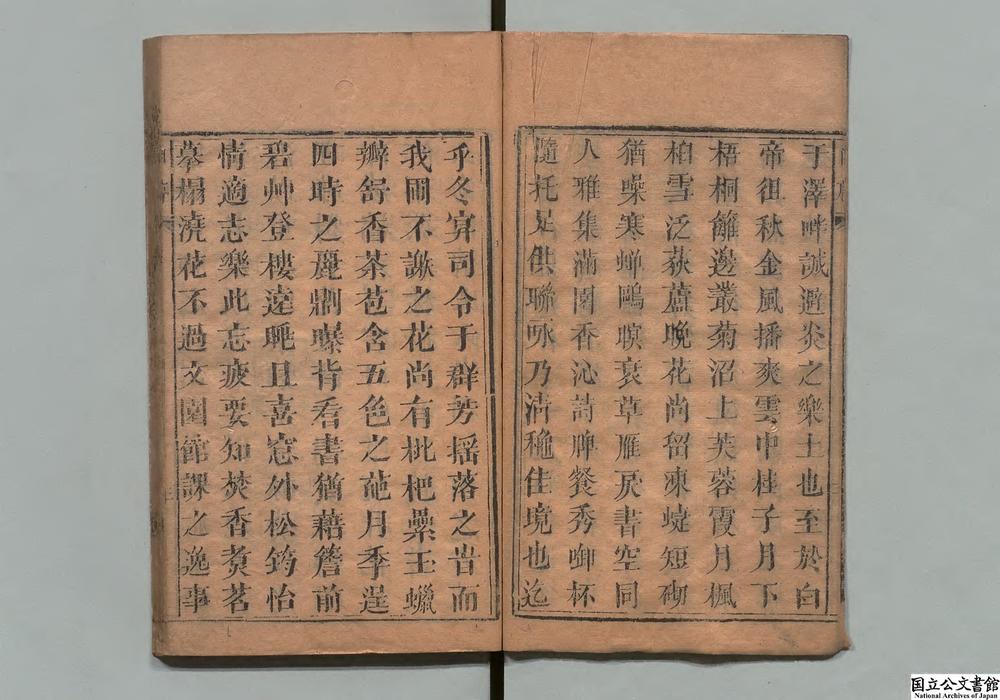 于澤畔誠避炎之樂土也至於白
帝徂秋金風播爽雲中桂子月下
梧桐籬邊叢菊沼上芙蓉霞月楓
柏雪泛荻蘆晚花尚留凍蜨短砌
猶噪寒蟬鷗暝衰草雁戾書空同
人雅集滿園香沁詩脾餐秀啣杯
隨托足供聯咏乃淸穐佳境也迄
乎冬冥司令于群芳揺落之旹而
我圃不謝之花尚有枇杷纍玉蠟
瓣舒香茶苞含五色之葩月季逞
四時之麗曝背看書猶藉簷前
碧艸登樓遠眺且喜窓外松筠怡
情適志樂此忘疲要知焚香煑茗
摹榻澆花不過文園館課之逸事
国立公文書館
National Archives of Japan